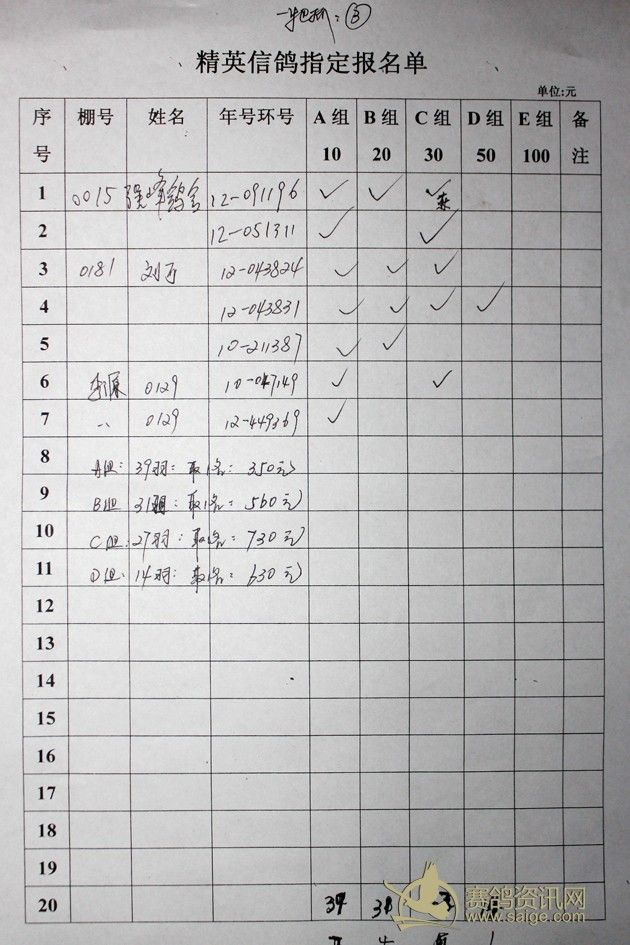 精英信鸽指定报名单
单位:元
序号 棚号 姓名 年号环号 A组10 B组20 C组30 D组50 E组100 备注
1 0015 12-091196 ✓ ✓ ✓
2 12-051311 ✓ ✓
3 0181 12-043824 ✓ ✓ ✓
4 12-043831 ✓ ✓ ✓ ✓
5 10-211387 ✓ ✓
6 李源 0129 10-047149 ✓ ✓
7 0129 12-449369 ✓
8 A组: 39羽: 取1名: 350元
9 B组 31羽: 取1名: 560元
10 C组: 27羽: 取1名: 730元
11 D组: 14羽: 取1名: 630元
12
13
14
15
16
17
18
19
20 39 31
赛鸽资讯网
www.saige.com